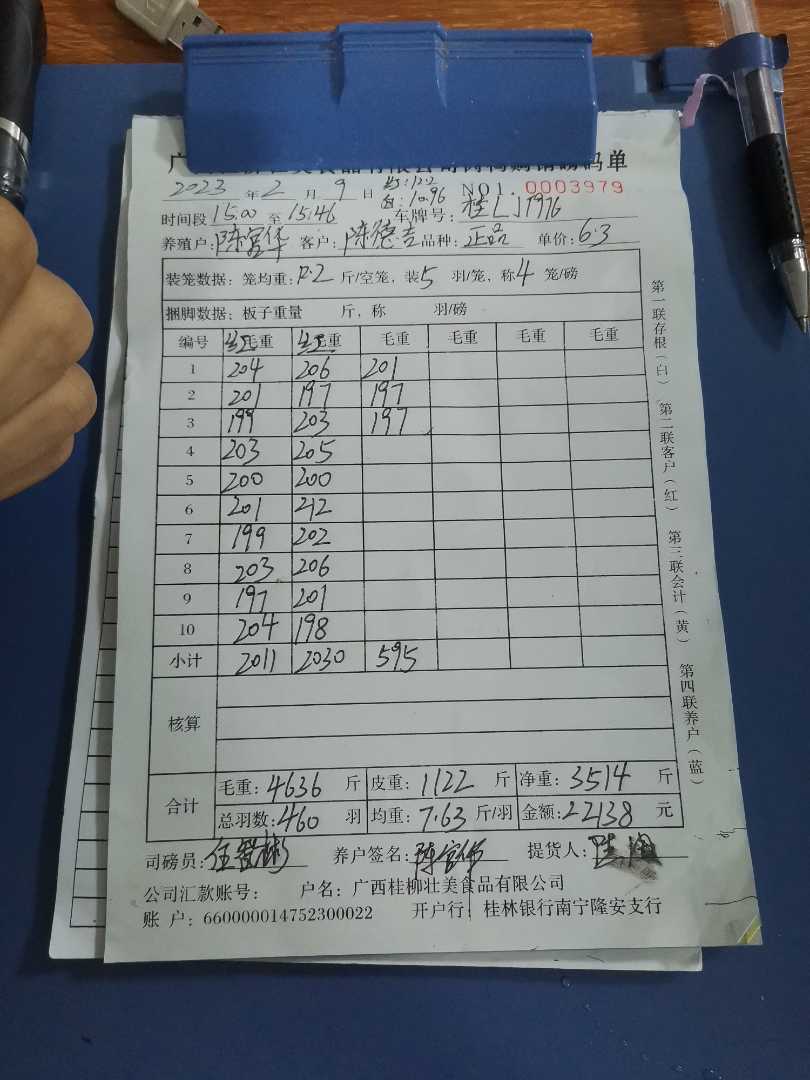 码单
2023 年 2 月 9 日 NO1. 0003979
时间段 15.00 至 15:46 车牌号: 1976
养殖户: 陈富华 客户: 陈德吉 品种: 正品 单价: 6.3
装笼数据: 笼均重: 12.2 斤/空笼, 装 5 羽/笼, 称 4 笼/磅
捆脚数据: 板子重量 斤, 称 羽/磅
编号 红毛重 红毛重 毛重 毛重 毛重 毛重
1 204 206 201
2 201 197 197
3 199 203 197
4 203 205
5 200 200
6 201 212
7 199 202
8 203 206
9 197 201
10 204 198
小计 2011 2030 595
核算
合计 毛重: 4636 斤 皮重: 1122 斤 净重: 3514 斤
总羽数: 460 羽 均重: 7.63 斤/羽 金额: 22138 元
司磅员: 养户签名: 陈富华 提货人:
公司汇款账号: 户名: 广西桂柳壮美食品有限公司
账 户: 660000014752300022 开户行: 桂林银行南宁隆安支行
第一联存根(白) 第二联客户(红) 第三联会计(黄) 第四联养户(蓝)